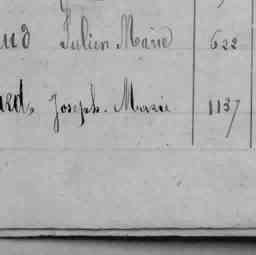 Julien Marie 622
Joseph. Marie 1137